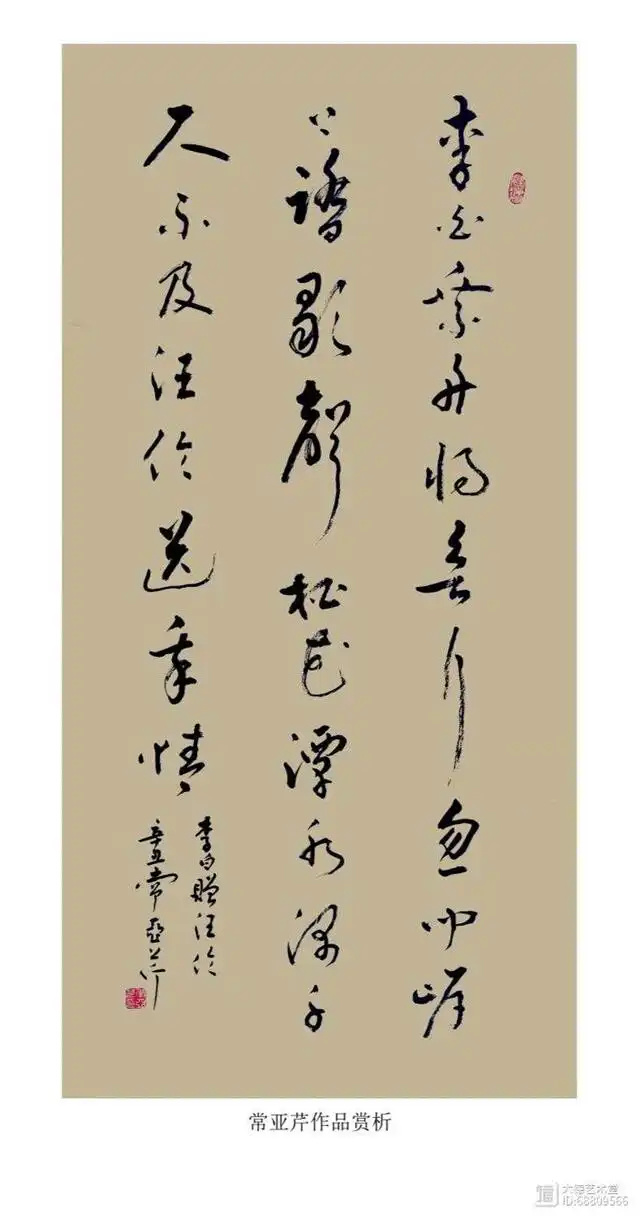 李白乘舟将欲行忽闻岸
上踏歌聲桃花潭水深千
尺不及汪伦送我情
李白赠汪伦
辛丑常亞芹
常亚芹作品赏析
ID:68809566